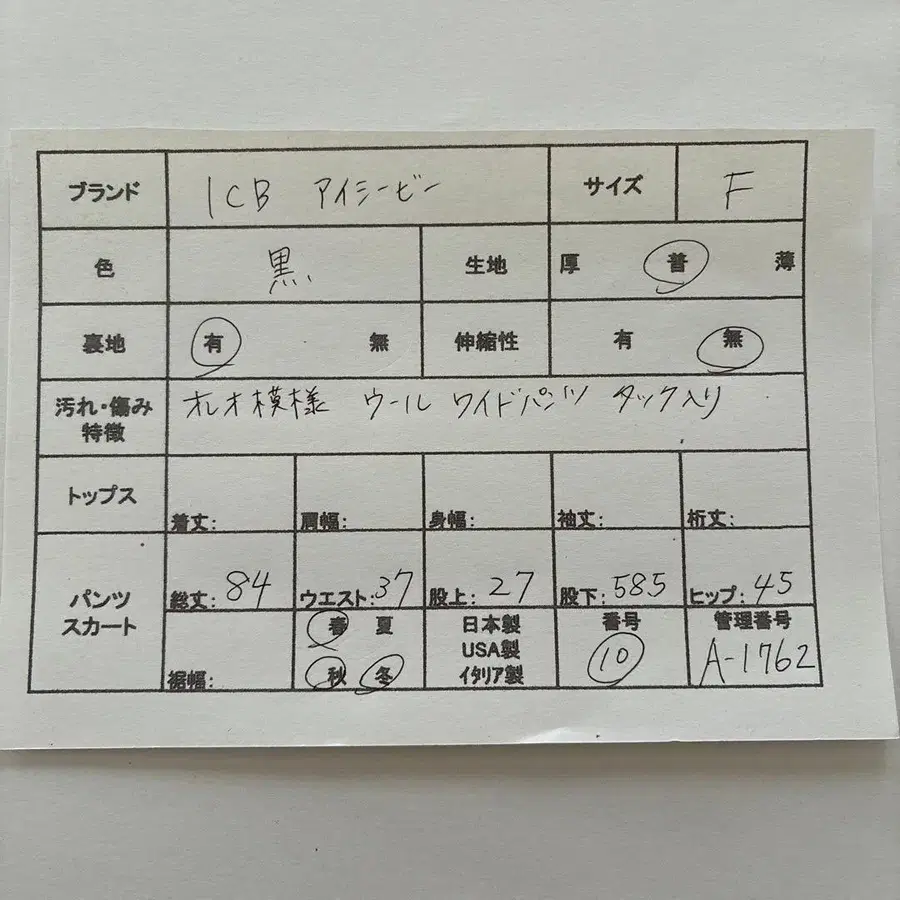 ブランド ICB アイシービー サイズ F
色 黒 生地 厚 普 薄
裏地 有 無 伸縮性 有 無
汚れ・傷み オレオ模様 ウール ワイドパンツ タック入り
特徴
トップス 着丈: 肩幅: 身幅: 袖丈: 裄丈:
パンツ 総丈: 84 ウエスト: 37 股上: 27 股下: 58.5 ヒップ: 45
スカート 裾幅: 春 夏 日本製 番号 管理番号
USA製
秋 冬 イタリア製 10 A-1762